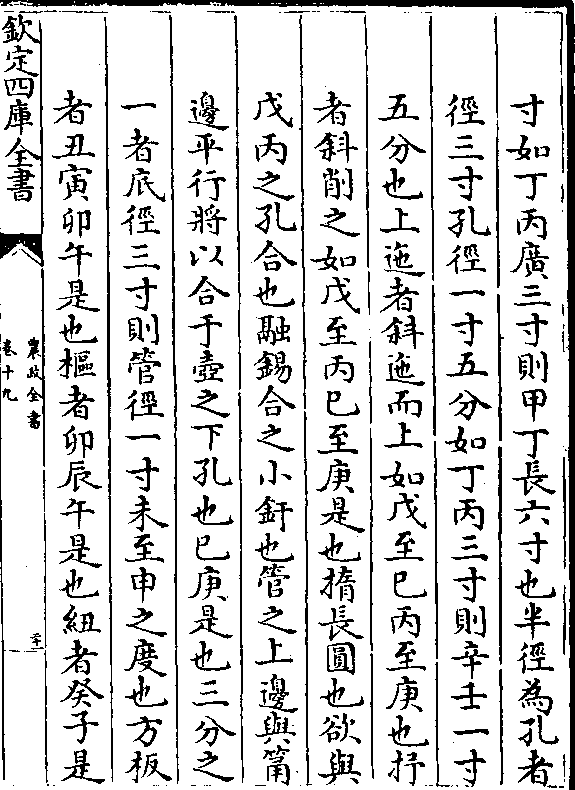 寸如丁丙廣三寸則甲丁長六寸也半徑為孔者
徑三寸孔徑一寸五分如丁丙三寸則辛壬一寸
五分也上迤者斜迤而上如戊至巳丙至庚也抒
者斜削之如戊至丙巳至庚是也撱長圓也欲與
戊丙之孔合也融錫合之小釬也管之上邊與筩
邊平行將以合于壺之下孔也巳庚是也三分之
一者底徑三寸則管徑一寸未至申之度也方板
者丑寅卯午是也樞者卯辰午是也紐者癸子是
欽定四庫全書
農政全書
卷十九
二十一